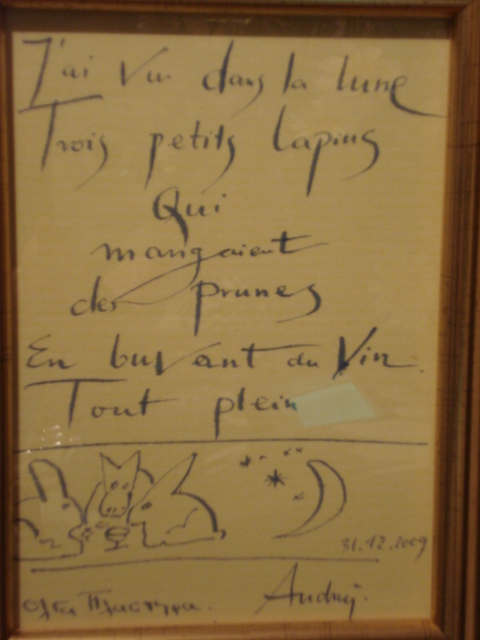 J'ai vu dans la lune
Trois petits lapins
Qui
mangaient
des prunes
En buvant du Vin
Tout plein
31.12.2009
Andrej.